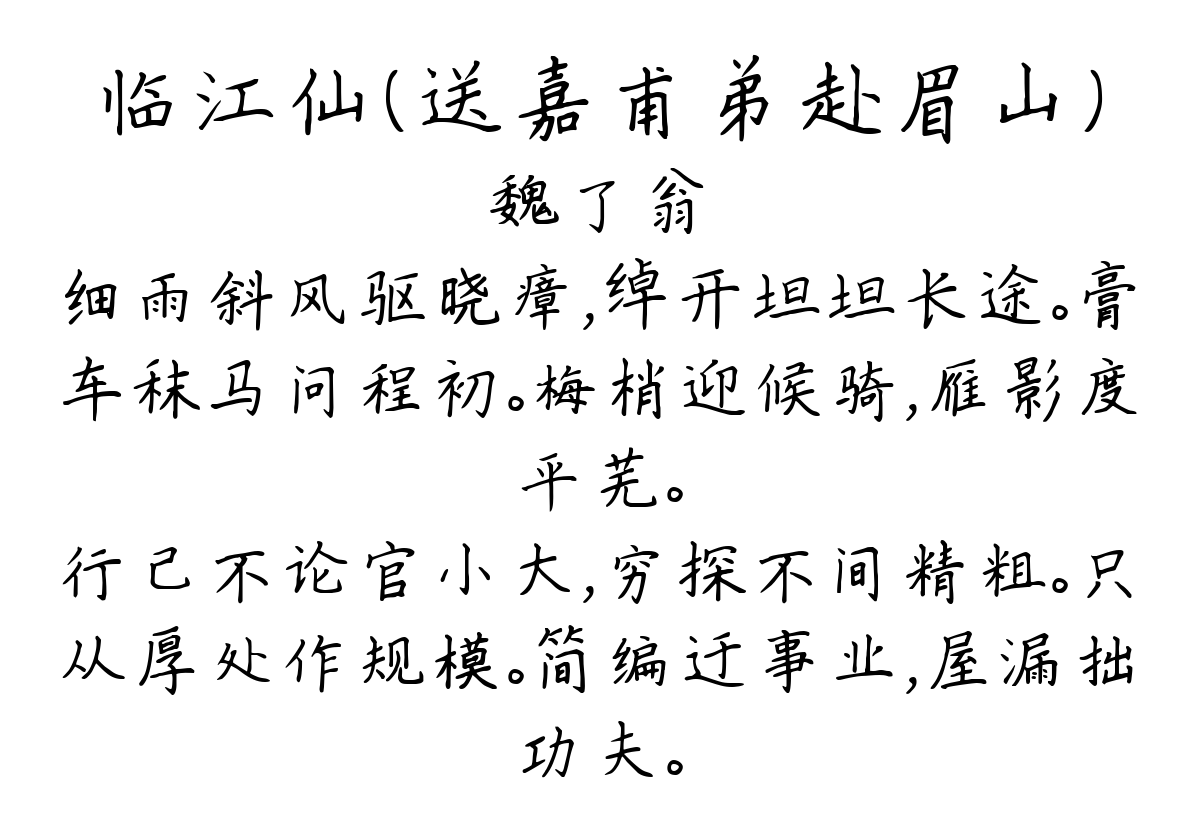 临江仙(送嘉甫弟赴眉山)
魏了翁
细雨斜风驱晓瘴,绰开坦坦长途。膏
车秣马问程初。梅梢迎候骑,雁影度
平芜。
行己不论官小大,穷探不间精粗。只
从厚处作规模。简编迂事业,屋漏拙
功夫。